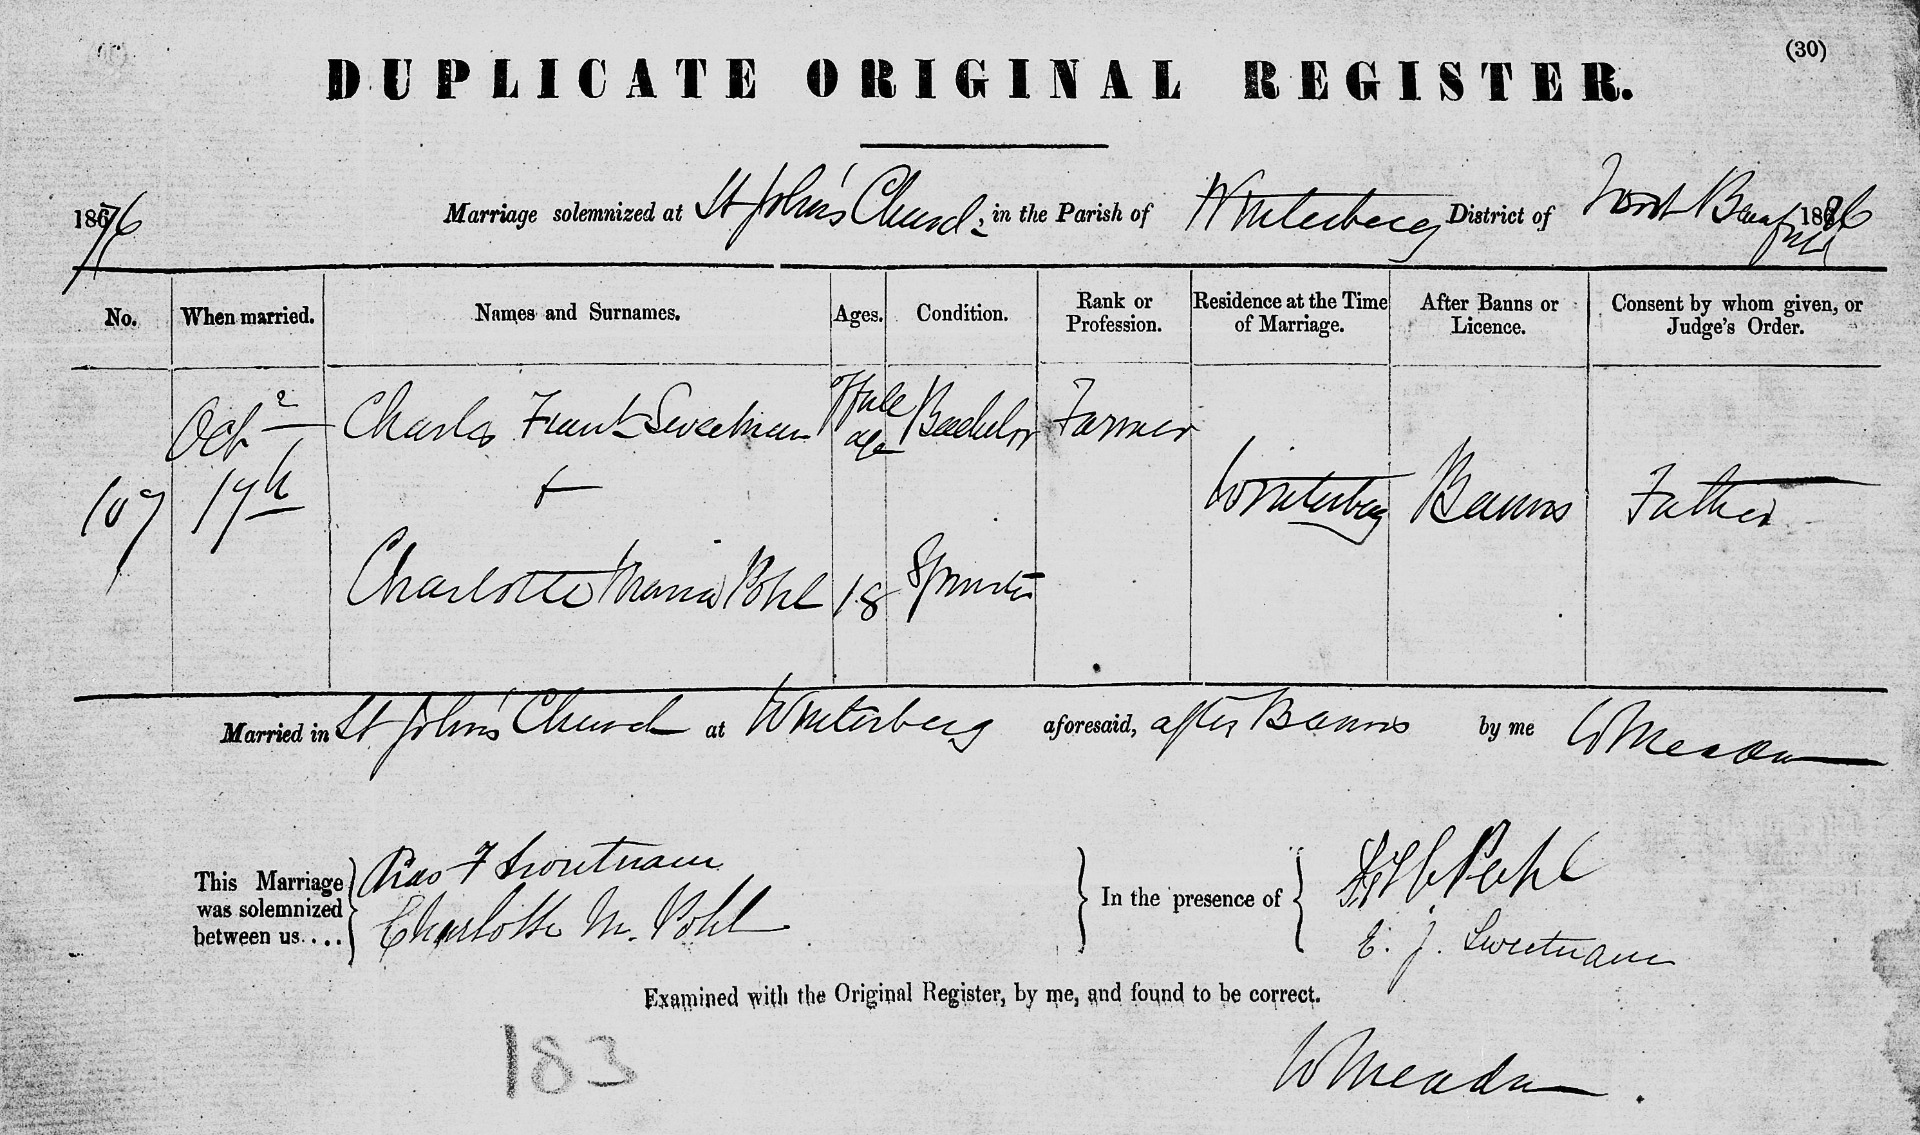 (30)
DUPLICATE ORIGINAL REGISTER.
1876 Marriage solemnized at St John's Church in the Parish of Winterberg District of 1876
No. When married. Names and Surnames. Ages. Condition. Rank or Profession. Residence at the Time of Marriage. After Banns or Licence. Consent by whom given, or Judge's Order.
Oct Charles Frank Sweetnam Full age Bachelor Farmer
107 17th + Winterberg Banns Father
Charlotte Maria Pohl 18 Spinster
Married in St John's Church at Winterberg aforesaid, after Banns by me W Meadon
This Marriage was solemnized between us....
Chas F Sweetnam
Charlotte M. Pohl
In the presence of
Pohl
E. J. Sweetnam
Examined with the Original Register, by me, and found to be correct.
183
W Meadon